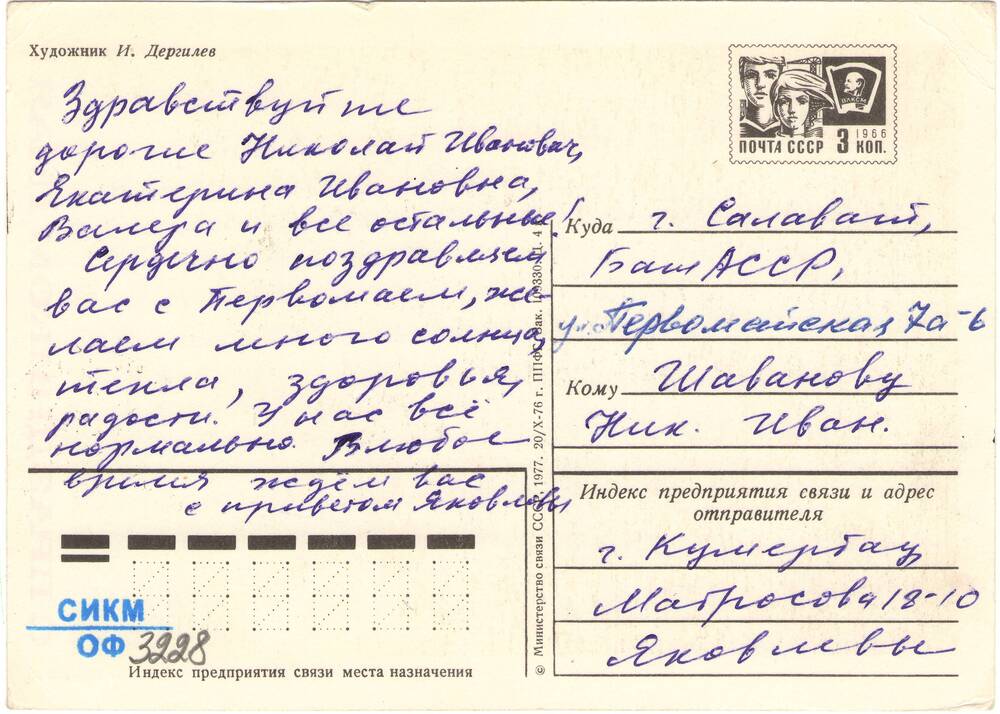 Художник И. Дергилев
Здравствуйте
дорогие Николай Иванович,
Екатерина Ивановна,
Валера и все остальные!
Сердечно поздравляем
вас с Первомаем, же-
лаем много солнца,
тепла, здоровья,
радости. У нас всё
нормально. В любое
время ждём вас
с приветом Яковлевы
ВЛКСМ
1966
ПОЧТА СССР 3 КОП.
Куда г. Салават,
БашАССР,
ул. Первомайская 7а-6
Кому Шаванову
Ник. Иван.
Индекс предприятия связи и адрес
отправителя
г. Кумертау
Матросова 18-10
Яковлевы
© Министерство связи СССР, 1977. 20/X-76 г. ППФГ
СИКМ
ОФ 3228
Индекс предприятия связи места назначения